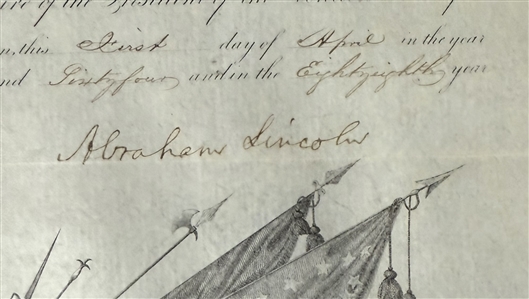 of the President of the
this First day of April in the year
Sixtyfour and in the Eightyeighth year
Abraham Lincoln